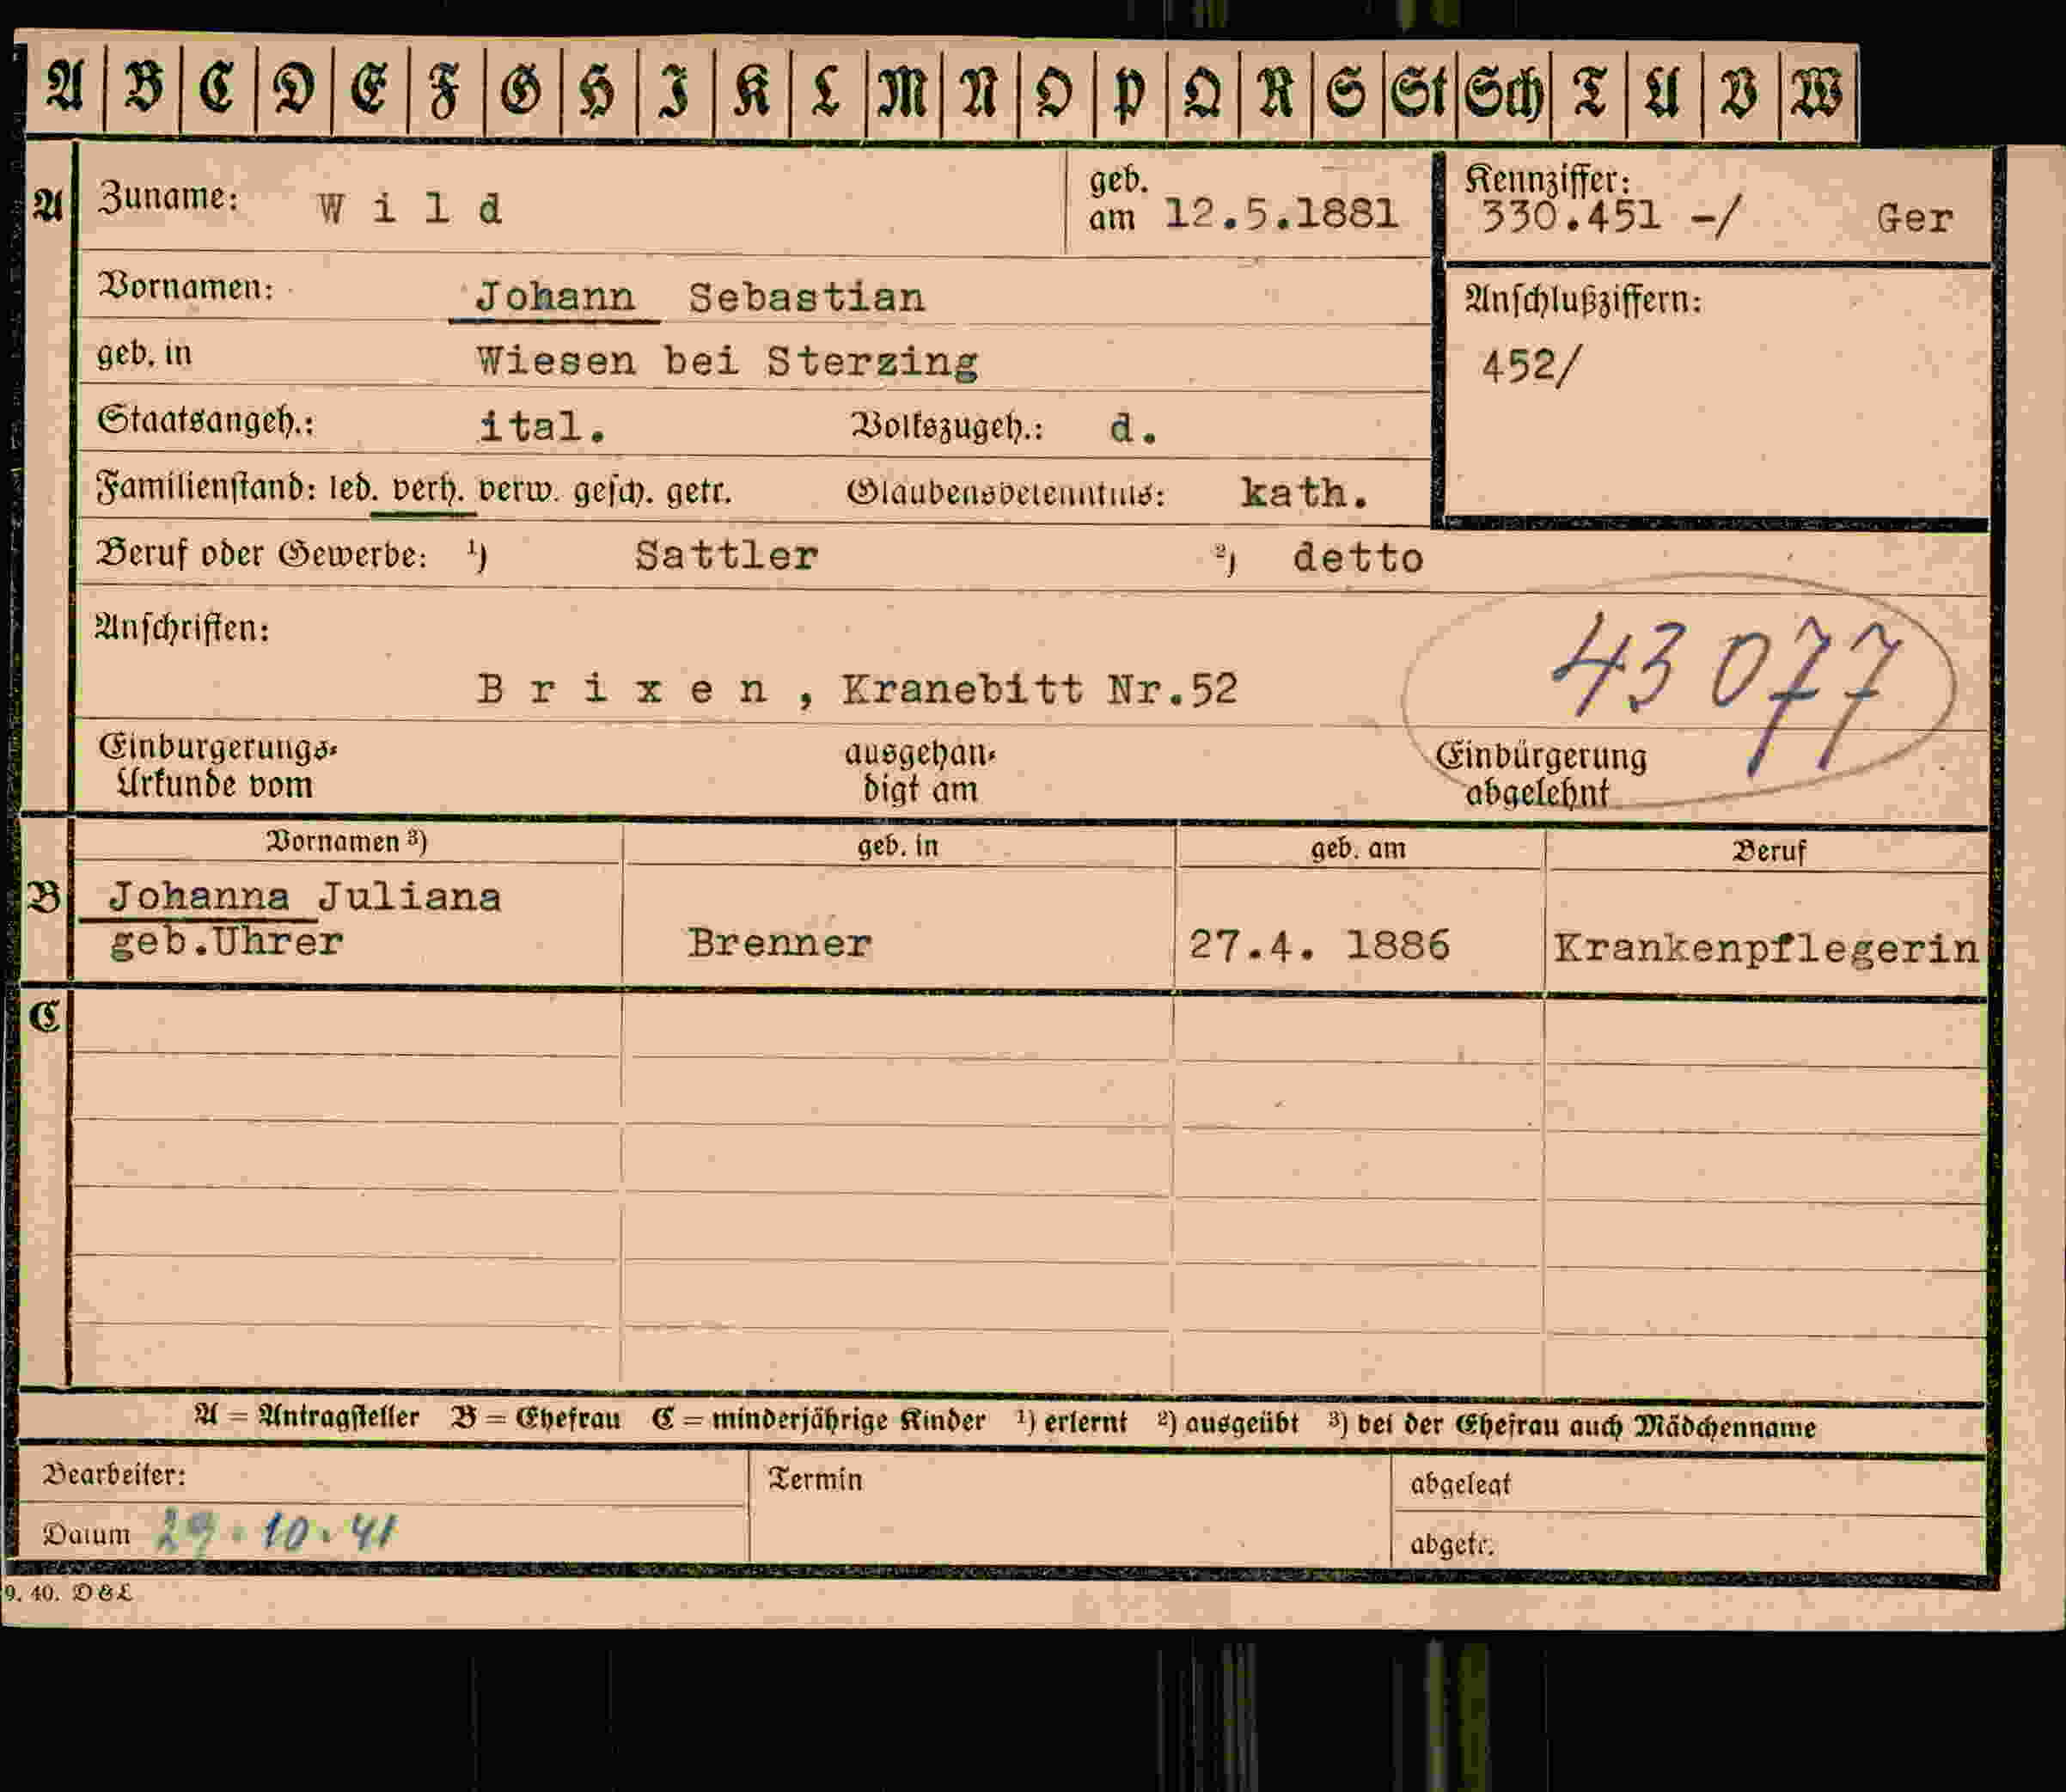 A B C D E F G H I K L M N O P Q R S St Sch T U V W
A Zuname: W i l d geb. am 12.5.1881 Kennziffer: 330.451 -/ Ger
Vornamen: Johann Sebastian Anschlußziffern:
geb. in Wiesen bei Sterzing 452/
Staatsangeh.: ital. Volkszugeh.: d.
Familienstand: led. verh. verw. gesch. getr. Glaubensbekenntnis: kath.
Beruf oder Gewerbe: ¹) Sattler ²) detto
Anschriften: 43077
B r i x e n , Kranebitt Nr.52
Einbürgerungs- ausgehän- Einbürgerung
Urkunde vom digt am abgelehnt
Vornamen ³) geb. in geb. am Beruf
B Johanna Juliana
geb.Uhrer Brenner 27.4. 1886 Krankenpflegerin
C
A = Antragsteller B = Ehefrau C = minderjährige Kinder ¹) erlernt ²) ausgeübt ³) bei der Ehefrau auch Mädchenname
Bearbeiter: Termin abgelegt
Datum 29.10.41 abgetr.
9. 40. D&L